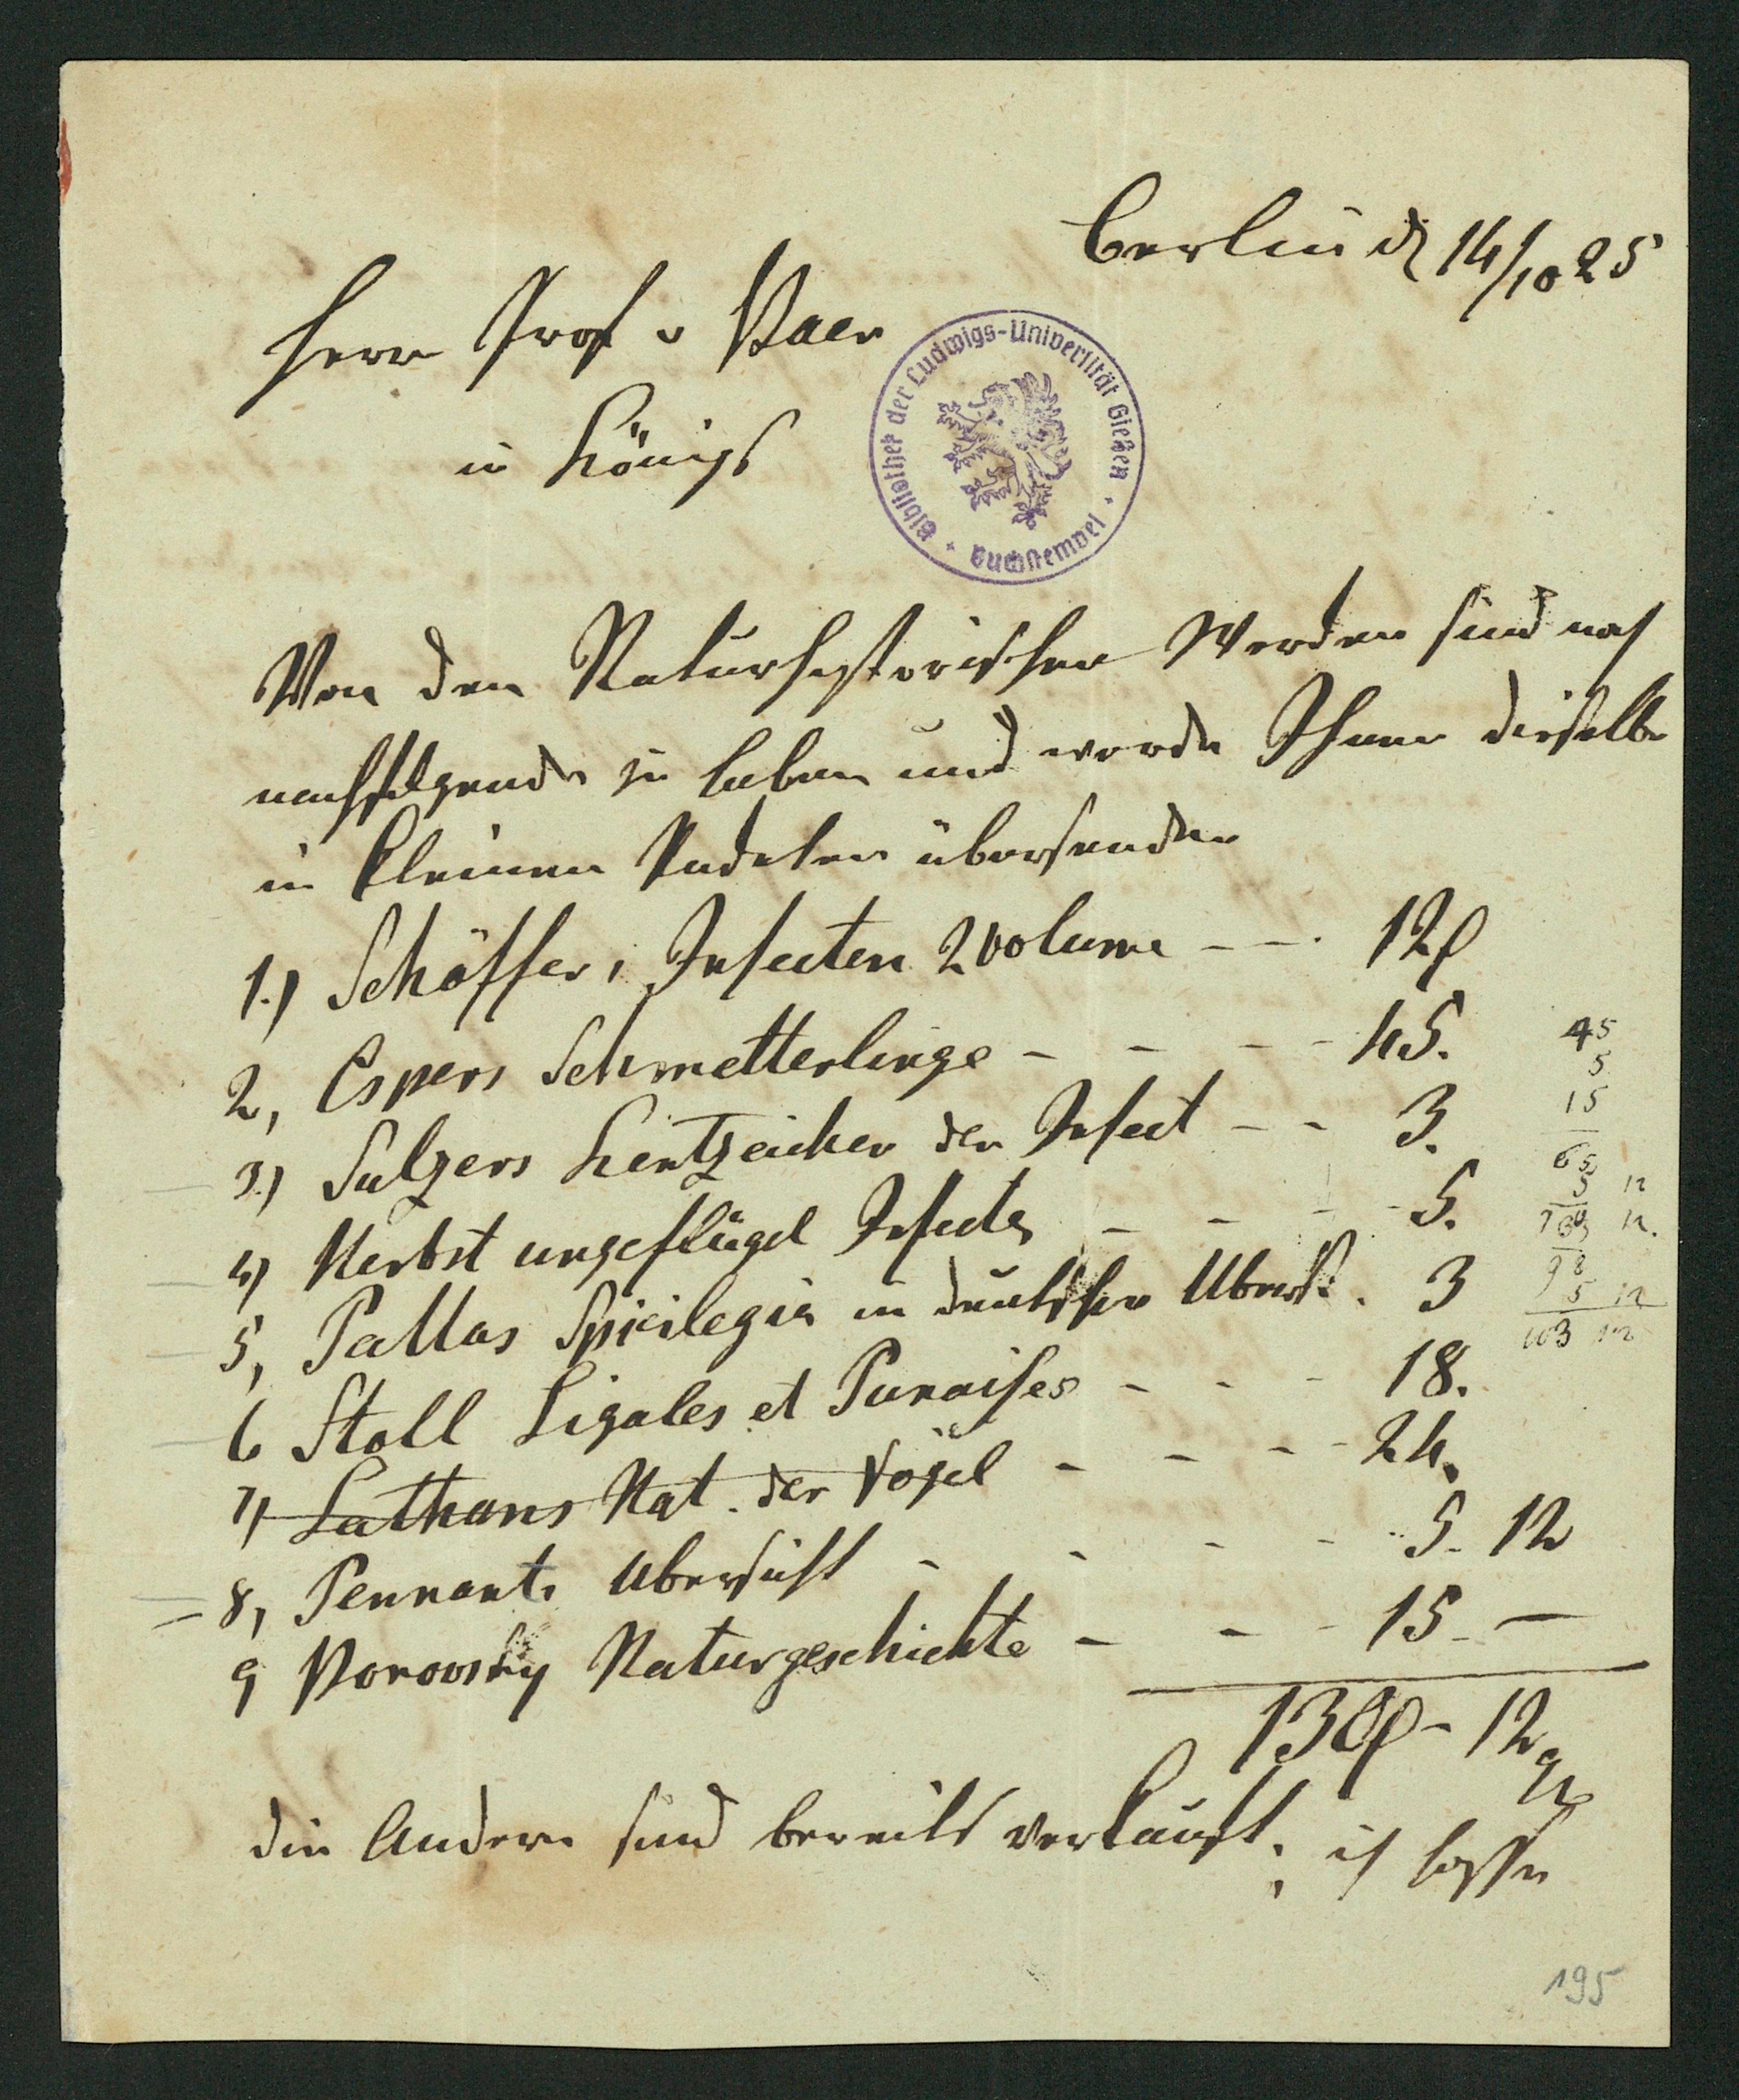 Berlin d 14/10 25
Herr Prof v Baer
in Königs
Bibliothek der Ludwigs-Universität Gießen
Buchstempel
Von den Naturhistorischen Werken sind noch
nachfolgende zu haben und werde Ihnen dieselbe
in kleinen Packeten übersenden
1.) Schöffer, Insecten 2 volume - - - 12
2, Espers Schmetterlinge - - - - 45.
3.) Sulzers Kentzeichen der Insect - - 3.
4) Herbst ungeflügel Insecten - - - 5.
5, Pallas Spicilegia in deutscher Ubers. 3
6 Stoll Cigales et Punaises - - - 18.
7) Lathams Nat. der Vögel - - - - 24.
8, Pennants Ubersicht - - - - 5. 12
9 Borowsky Naturgeschichte - - - 15. —
130 - 12
45
5
15
65
5 12
12.
5 12
103 12
die Andern sind bereits verkauft; ich hoffe
195